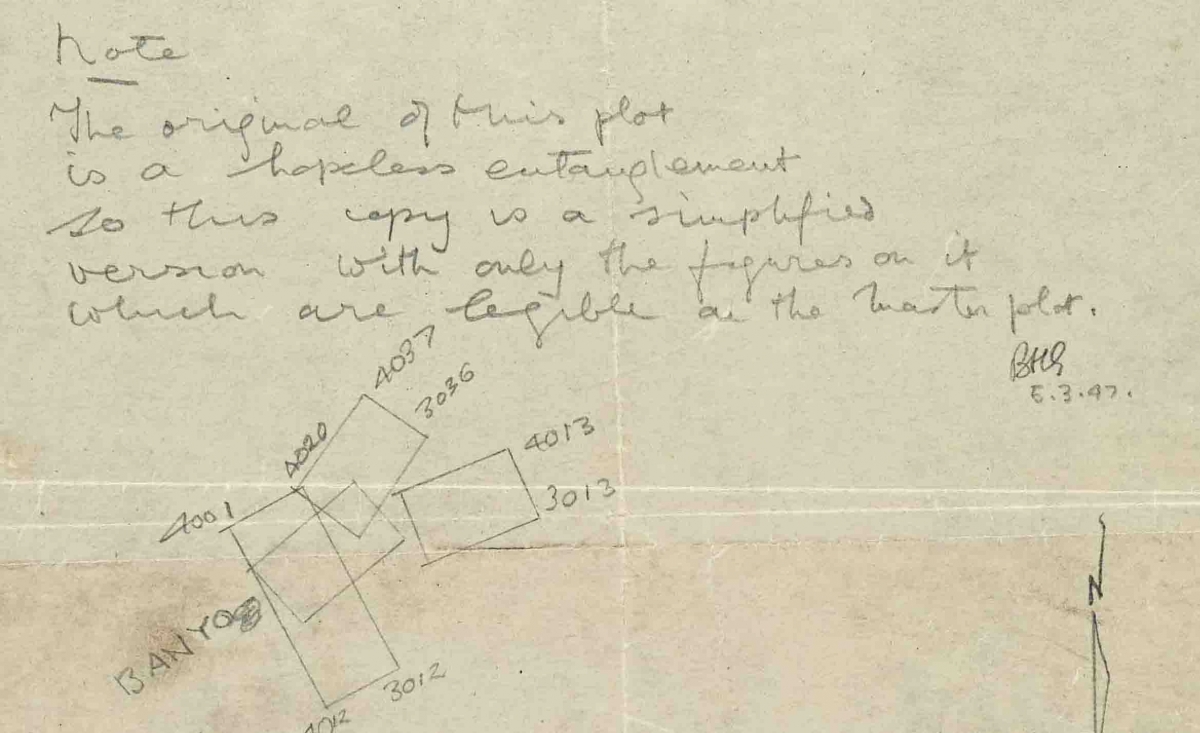 Note
The original of this plot
is a hopeless entanglement
so this copy is a simplified
version with only the figures on it
which are legible on the master plot.
BHS
5.3.47.
4037
3036
4020
4013
4001
3013
BANYO
3012
4012
N